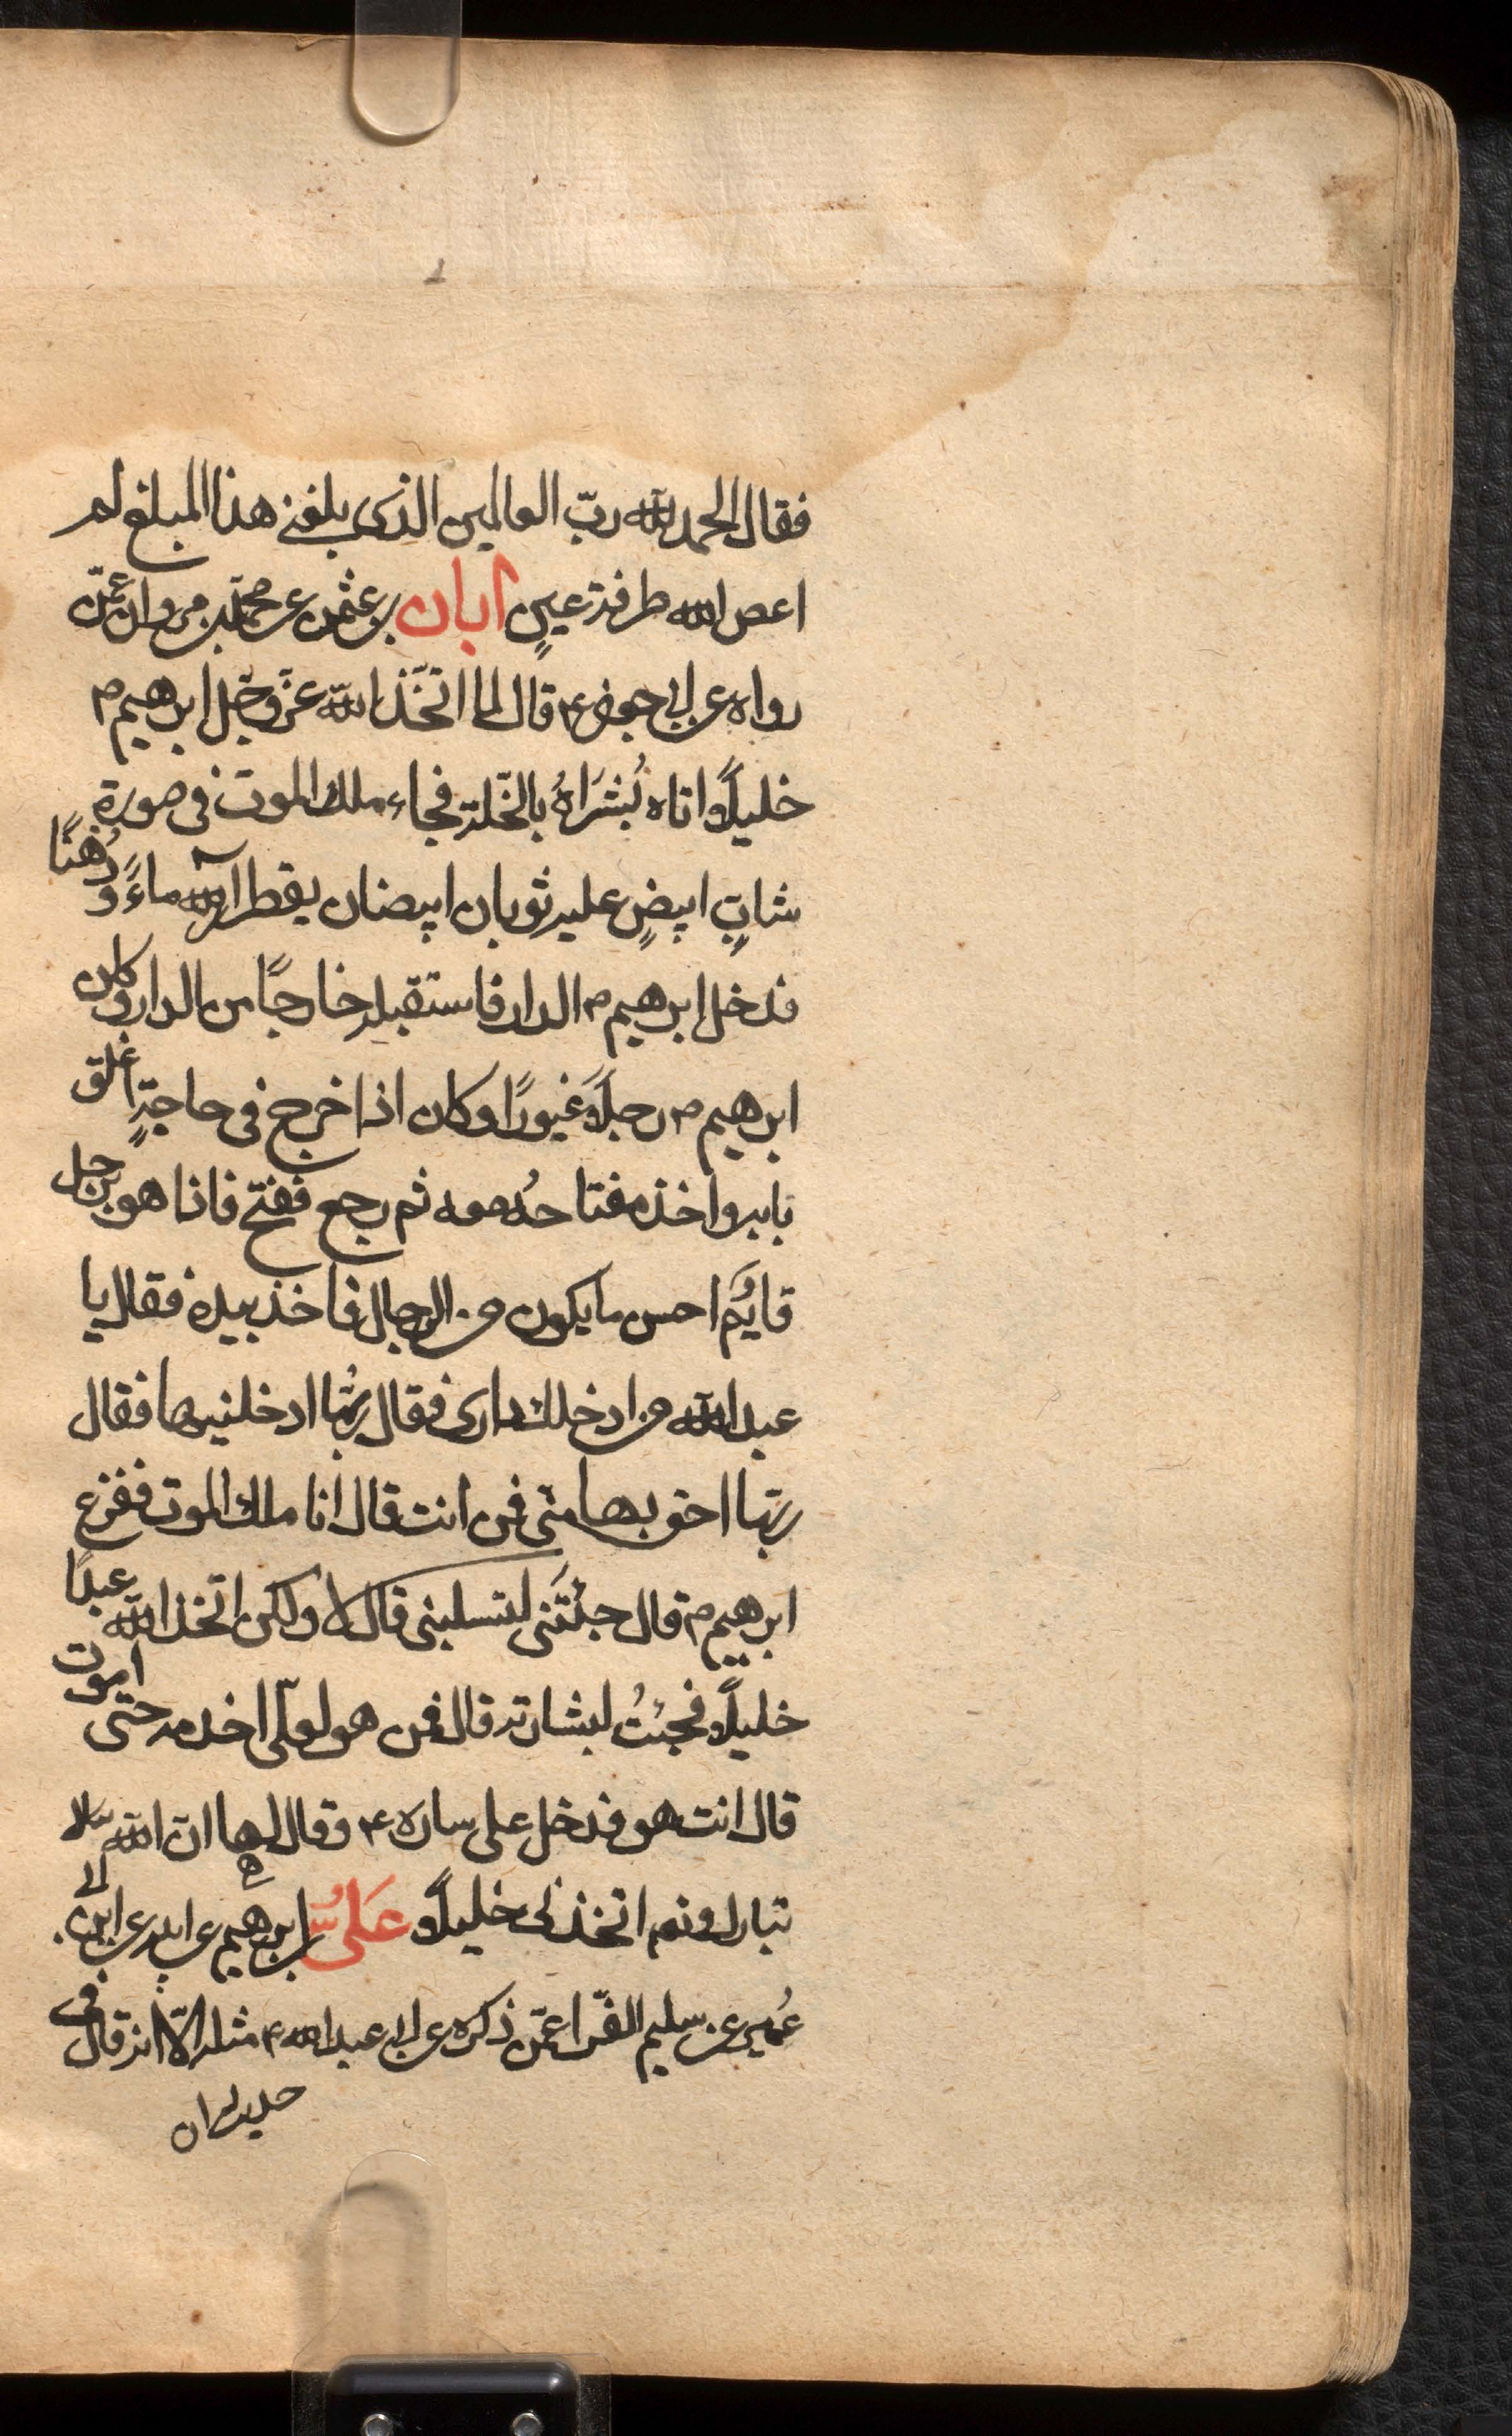 فقال الحمد لله ربّ العالمين الذى بلغنى هذا المبلغ لم
اعص الله طرفة عينٍ أبان بن عثمن عن محمّد بن مروان عمّن
رواه عن ابى جعفر ع قال لما اتخّذ الله عزّ وجلّ ابرهيم م
خليلًا اتاه بُشَراهُ بالخّلة فجاء ملك الموت فى صورة
شابٍ ابيضٍ عليه ثوبان ابيضان يقطر رأسه ماءً ودُهنًا
فدخل إبرهيم م الدار فاستقبله خارجًا من الدار وكان
ابرهيم م رجلًا غَيورًا وكان اذا خرج فى حاجةٍ اغلق
بابه واخذ مفتاحهُ معه ثم رجع ففتح فاذا هو برجل
قايمٌ احسن ما يكون من الرجال فاخذ بيده فقال يا
عبد الله من ادخلك دارى فقال ربُّها ادخلنيها فقال
ربّها احق بها منّى فمن انت قال انا ملك الموت ففزع
ابرهيم م قال جئتَنى لتسلبنى قال لا ولكن اتخذ الله عبدًا
خليلًا فجئتُ لبشارته قال فمن هو لعلّى اخدمه حتى اموت
قال انت هو فدخل على ساره ع وقال لها انّ الله
تبارك وتعم اتخذنى خليلًا عَلىُّ بن ابرهيم عن ابيه عن ابن ابى
عُمير عن سليم الفرّا عمّن ذكره عن ابى عبد الله ع مثله الّا انه قال فى
حديثه ان